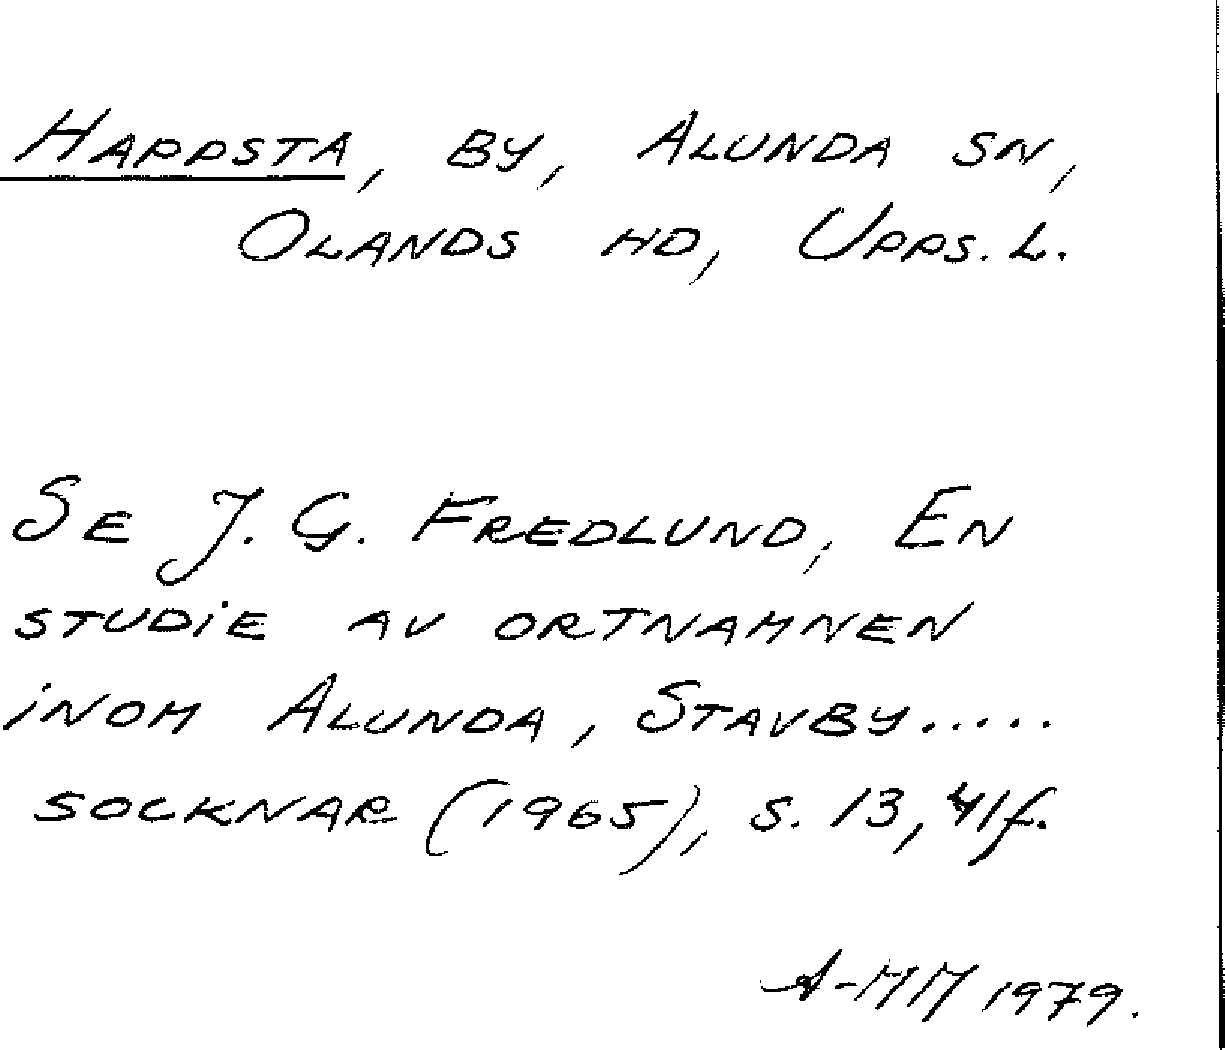 Happsta, by, Alunda sn,
Olands hd, Upps. l.
Se J. G. Fredlund, En
studie av ortnamnen
inom Alunda, Stavby.....
socknar (1965), s. 13, 41f.
A-MM 1979.